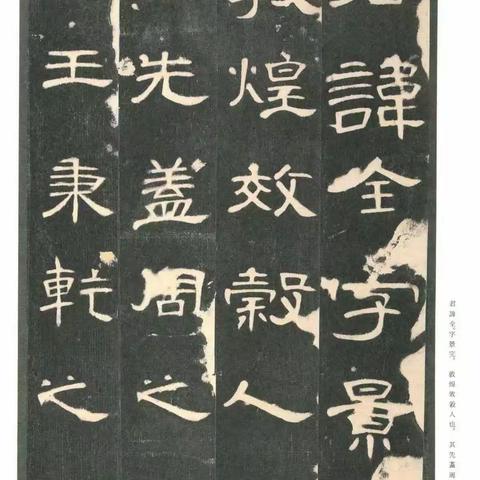 君諱全字景
敦煌效穀人
先蓋周之
王秉乾之
君諱全，字景完，敦煌效穀人也。其先蓋周